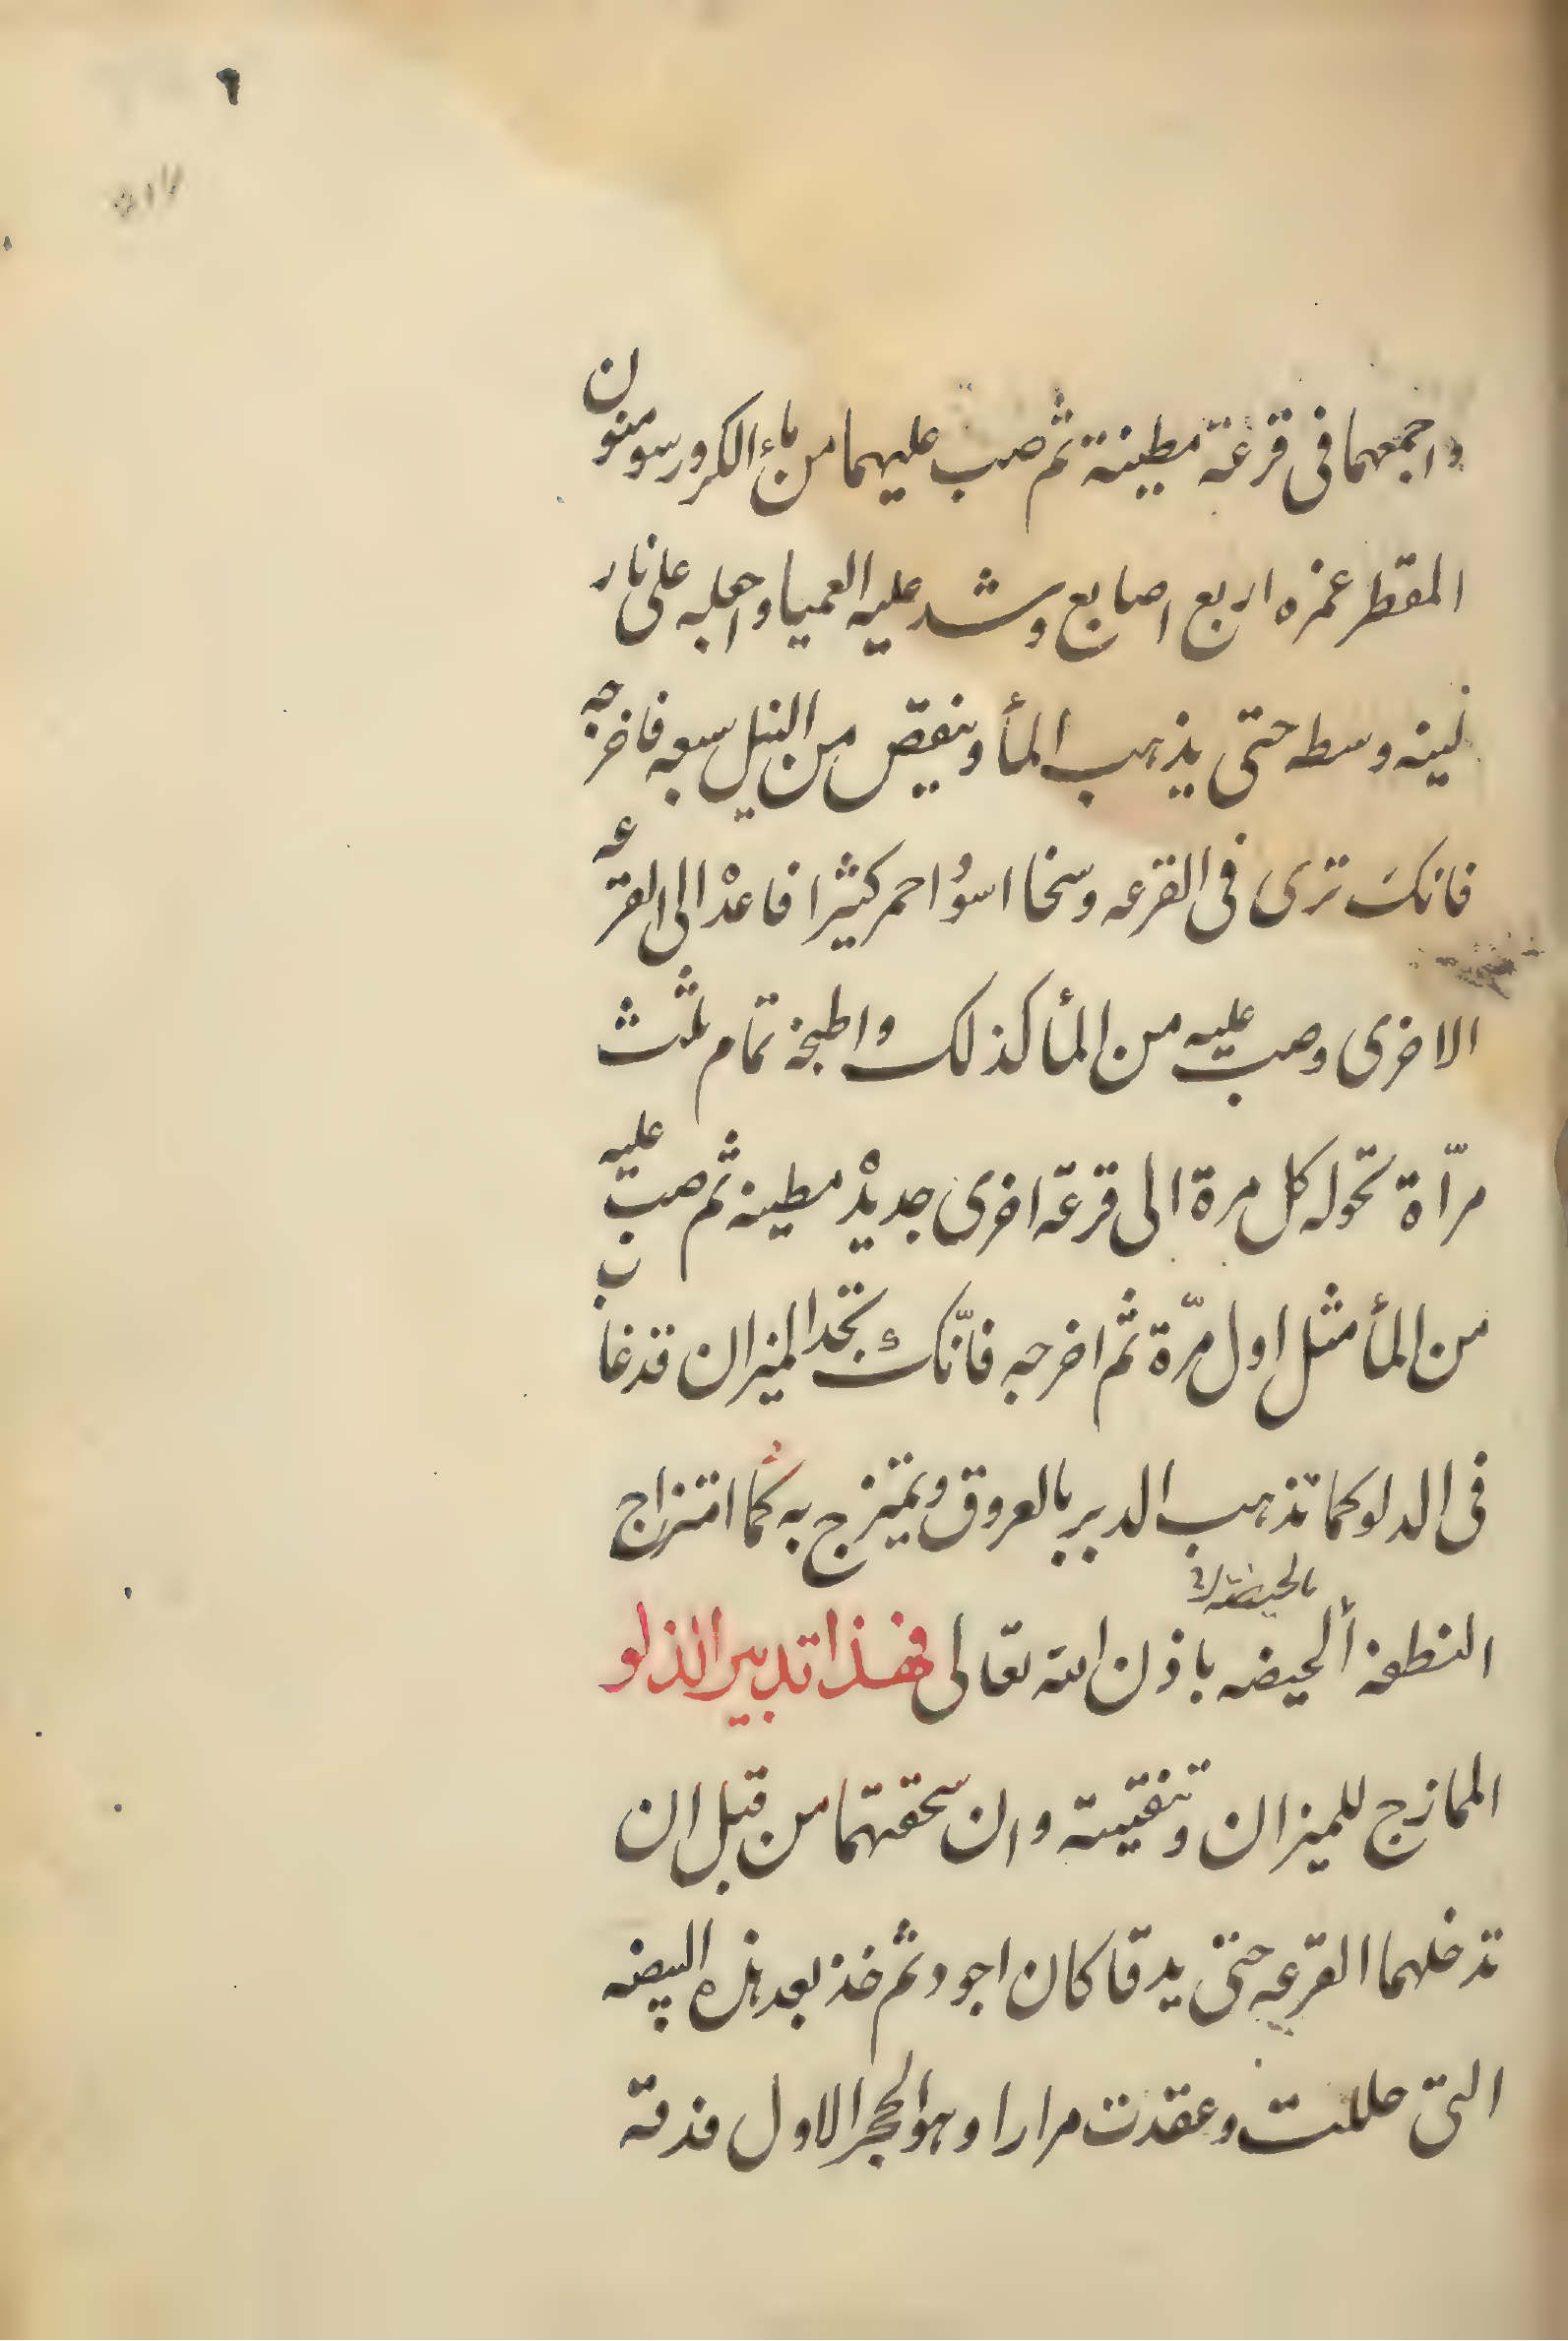 ٦
واجمعهما فى قرعة مطينة ثم صب عليهما من ماء الكرورسومنون
المقطر غمره اربع اصابع وشد عليه العميا واجعله على نار
لينه وسطه حتى يذهب المأ وينقص من النيل سبعه فاخرجه
فانك ترى فى القرعه وسخا اسوُد احمر كثيرا فاعدْ الى القرعه
الاخرى وصب عليه من المأ كذلك واطبخه تمام ثلث
مرّاة تحوله كل مرة الى قرعة اخرى جديدْ مطينه ثم صب عليه
من المأ مثل اول مرّة ثم اخرجه فانّك تجد الميزان قد غاب
فى الدلو كما تذهب الدبر بالعروق ويمتزج به كما امتزاج
النطفه ألحيضه باذن الله تعالى فهذا تدبير الدلو
بالحيضه
الممازج للميزان وتنقيته وان سحقتهما من قبل ان
تدخلهما القرعه حتى يدقا كان اجود ثم خذ بعد هذه البيضه
التى حللت وعقدت مرارا وهو الحجر الاول فدقه